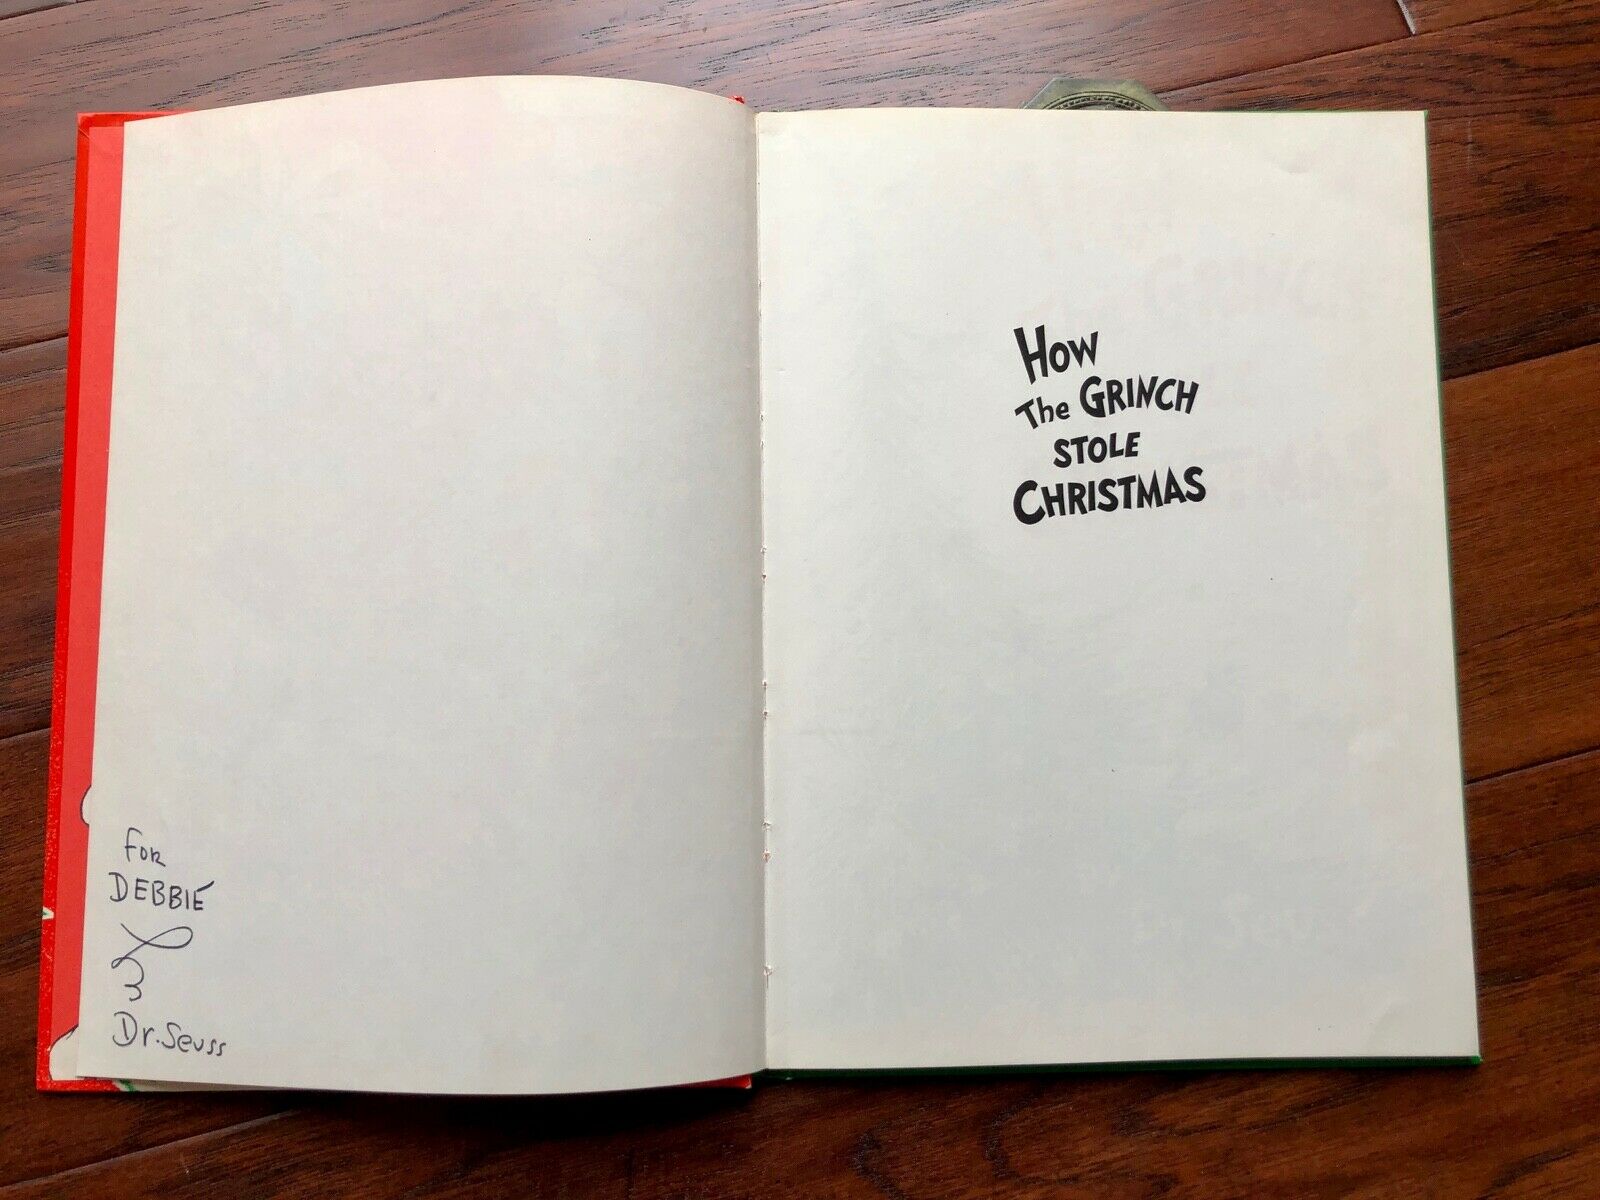 For
DEBBIE
Dr. Seuss
How
The GRINCH
STOLE
CHRISTMAS